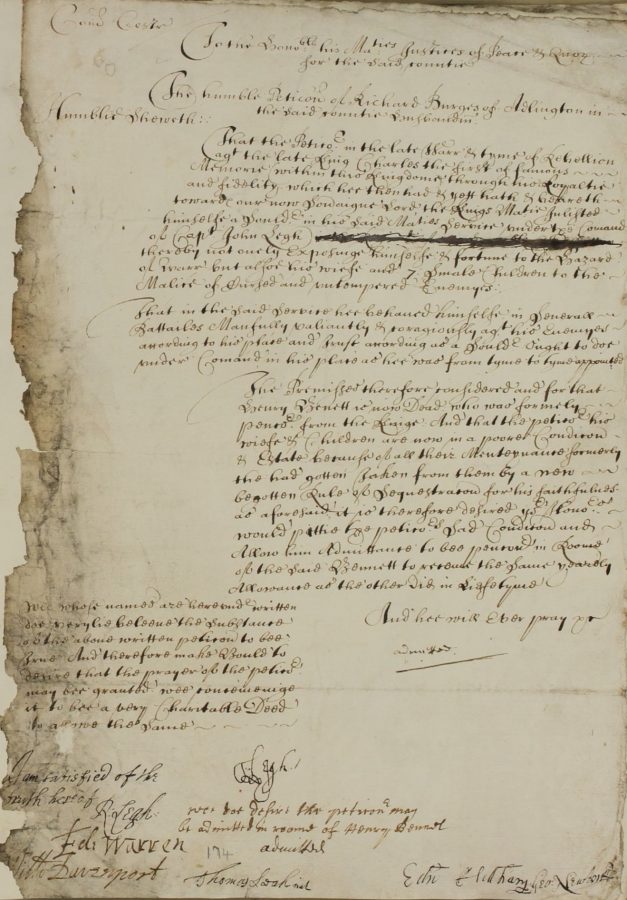 To the Honoble his Maties Justices of Peace &
for the said countie
The humble Peticon of Richard Burges of Adlington in
the said countie husbandm
Humblie Sheweth:
That the Peticor in the late Warr & tyme of Rebellion
agt the late King Charles the first of famous
Memorie within this Kingdome through his Loyaltie
and fidelity which hee then had & yett hath & beareth
toward our now Soveaigne Lord the Kings Matie Inlisted
himselfe a Sould in his said Maties Service under the Comand
of Capt John Legh
thereby not onely Exposinge himselfe & fortune to the Hazard
of Warr but alsoe his wiefe and 7 Smale Children to the
Malice of and untempered Enemyes:
That in the said Service hee behaved himselfe in Generall
Battailes Manfully valiantly & coragiously agt his Enemyes
according to his place and Trust according as a Sould ought to doe
under Comand in his place as hee was from tyme to tyme appointed
The Premisses therefore considered and for that
Henry Benett is now Dead who was formely
penconr from the Kinge And that the peticor his
wiefe & Children are now in a poore Condicon
& Estate because of all their Menteynance formerly
the had gotten Taken from them by a new
begotten Rule of Sequestracon for his faithfulnes
as aforesaid it is therefore desired yor Honors
would pittie the peticors Sad Condicon and
Allow him Admittance to bee pencor in Roome
of the said Bennett to receive the Same yearely
Allowance as the other Did in Lifetyme
And hee will Ever pray &c
admitted
Wee whose names are hereund written
doe verylie beleeve the Substance
of the above written peticon to bee
True And therefore make Bould to
desire that the prayer of the peticor
may bee granted wee conceiveinge
it to bee a very Charitable Deed
to allowe the Same
I am satisfied of the
truth hereof
Legh
R Legh
wee doe desire the peticonr may
be admitted in roome of Henry Bennet
admitted
Edw Warren
174
Davenport
Thomas